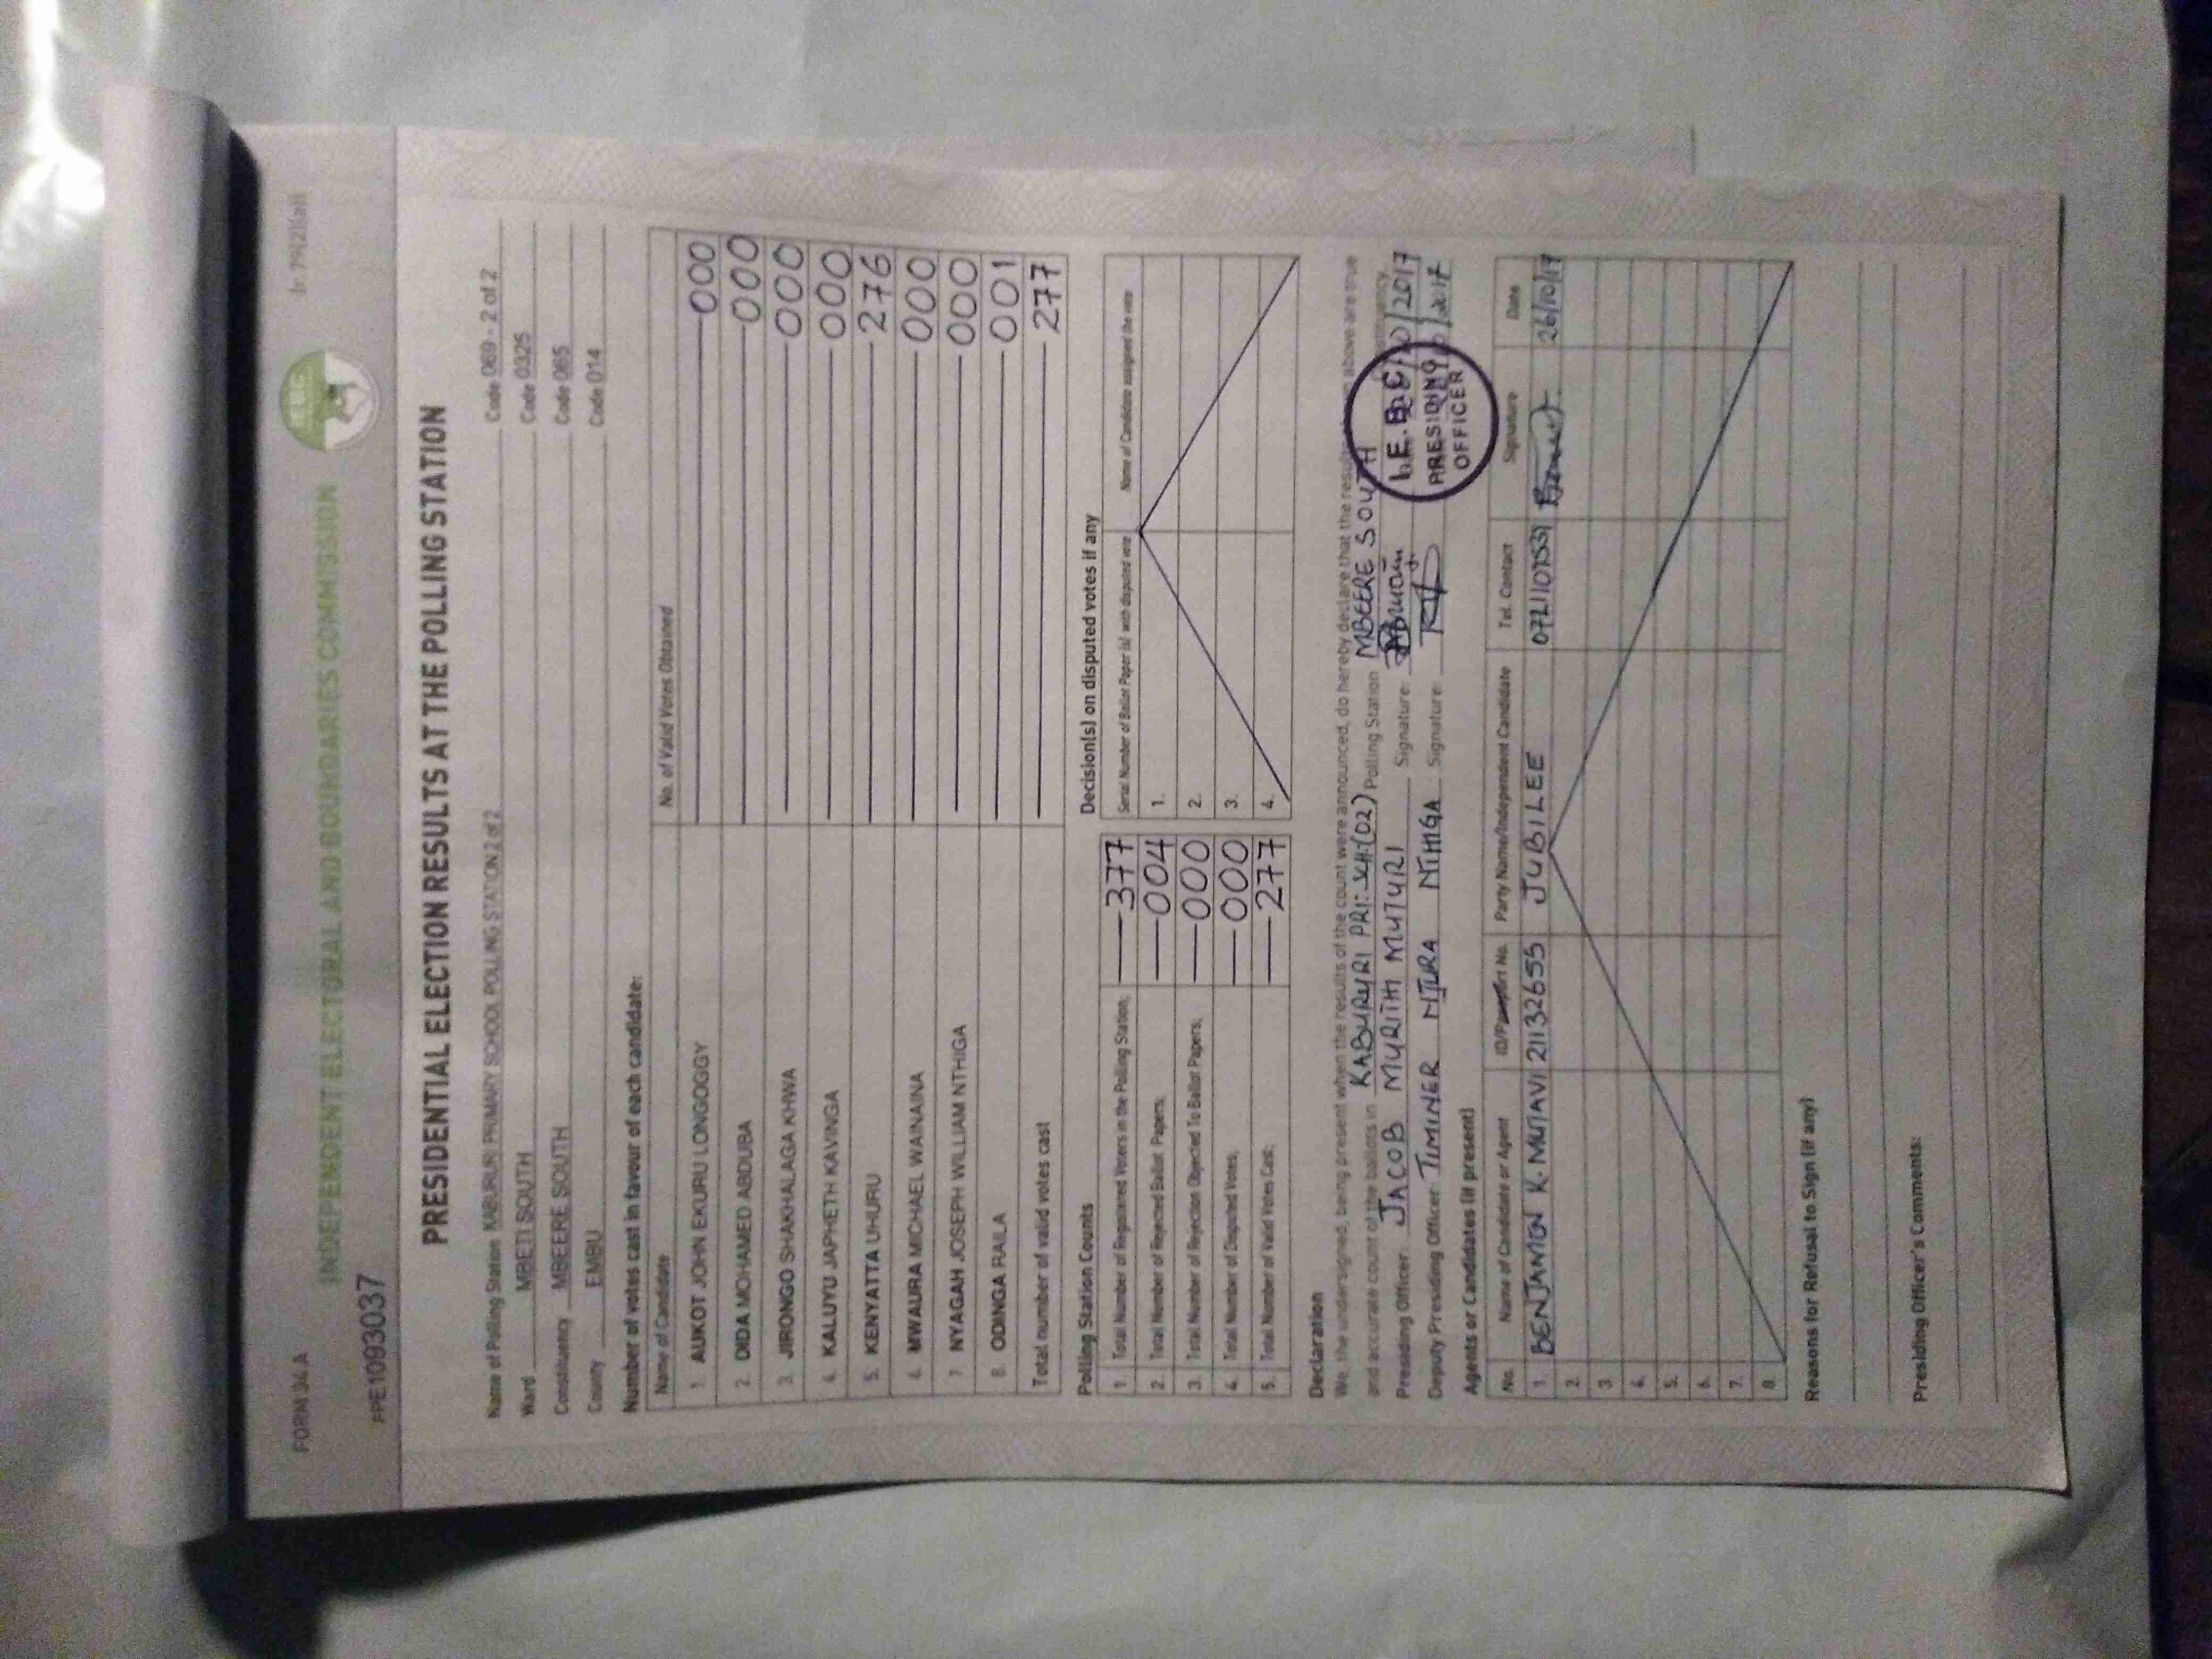 FORM 34 A
INDEPENDENT ELECTORAL AND BOUNDARIES COMMISSION
IEBC
PPE1093037
PRESIDENTIAL ELECTION RESULTS AT THE POLLING STATION
Name of Polling Station KABURURI PRIMARY SCHOOL POLLING STATION 2 of 2 Code 069 - 2 of 2
Ward MBETI SOUTH Code 0325
Constituency MBEERE SOUTH Code 065
County EMBU Code 014
Number of votes cast in favour of each candidate:
Name of Candidate No. of Valid Votes Obtained
1. AUKOT JOHN EKURU LONGOGGY 000
2. DIDA MOHAMED ABDUBA 000
3. JIRONGO SHAKHALAGA KHWA 000
4. KALUYU JAPHETH KAVINGA 000
5. KENYATTA UHURU 276
6. MWAURA MICHAEL WAINAINA 000
7. NYAGAH JOSEPH WILLIAM NTHIGA 000
8. ODINGA RAILA 001
Total number of valid votes cast 277
Polling Station Counts
1. Total Number of Registered Voters in the Polling Station; 377
2. Total Number of Rejected Ballot Papers; 004
3. Total Number of Rejection Objected To Ballot Papers; 000
4. Total Number of Disputed Votes; 000
5. Total Number of Valid Votes Cast; 277
Decision(s) on disputed votes if any
Serial Number of Ballot Paper (s) with disputed vote Name of Candidate assigned the vote
1.
2.
3.
4.
Declaration
We, the undersigned, being present when the results of the count were announced, do hereby declare that the results above are true
and accurate count of the ballots in KABURURI PRI. SCH. (02) Polling Station MBEERE SOUTH
Presiding Officer: JACOB MURITHI MUTURI Signature: 2017
Deputy Presiding Officer: TIMINER NJURA NTHIGA Signature: 2017
I.E.B.C
PRESIDING
OFFICER
Agents or Candidates (if present)
No. Name of Candidate or Agent ID/Passport No. Party Name/Independent Candidate Tel. Contact Signature Date
1. BENJAMON K. MUTAVI 21132655 JUBILEE 26/10/17
2.
3.
4.
5.
6.
7.
8.
Reasons for Refusal to Sign (if any)
Presiding Officer's Comments: